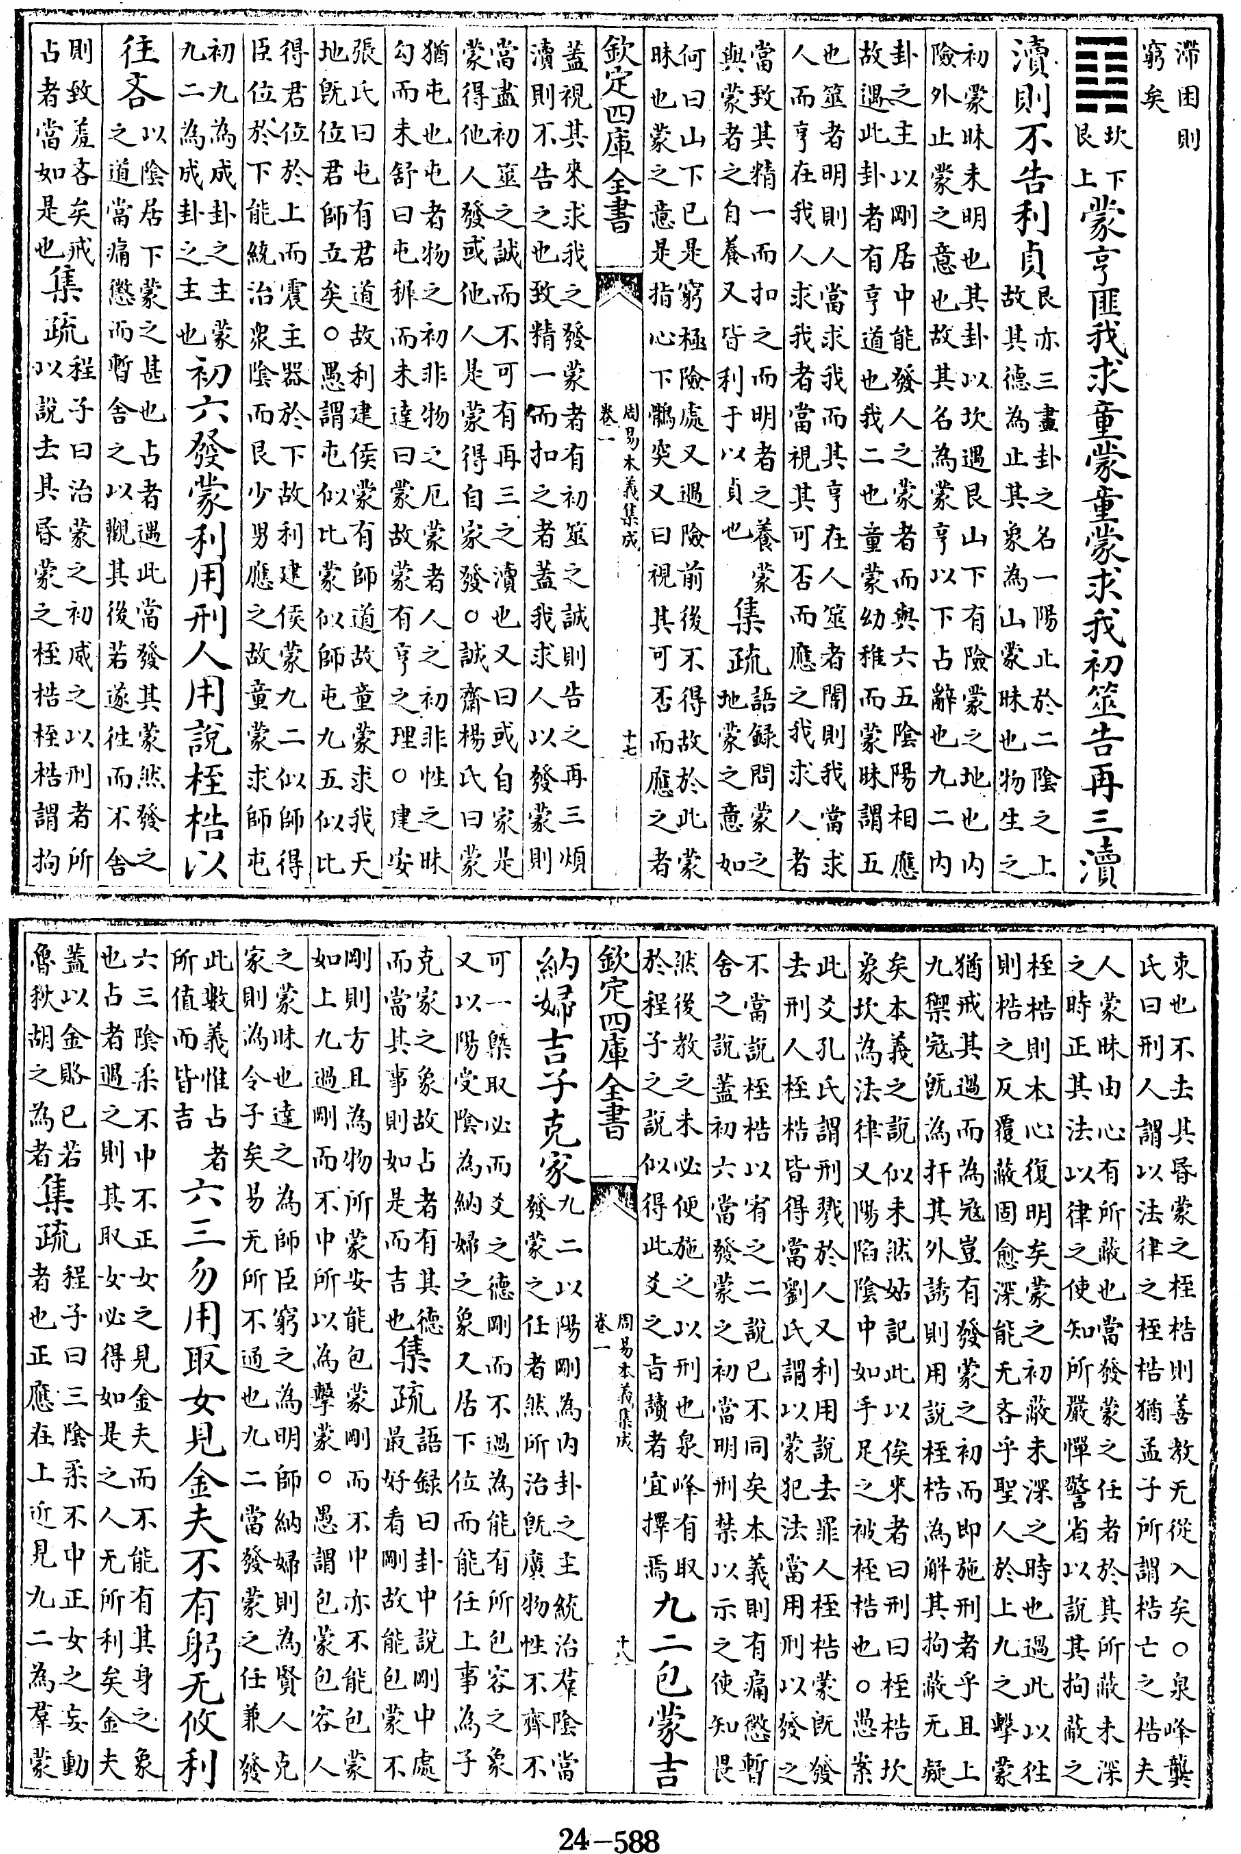 滯困則
窮矣
䷃ 坎下
艮上
蒙亨匪我求童蒙童蒙求我初筮告再三瀆
瀆則不告利貞
艮亦三畫卦之名一陽止於二陰之上
故其德為止其象為山蒙昧也物生之
初蒙昧未明也其卦以坎遇艮山下有險蒙之地也内
險外止蒙之意也故其名為蒙亨以下占辭也九二内
卦之主以剛居中能發人之蒙者而與六五陰陽相應
故遇此卦者有亨道也我二也童蒙幼稚而蒙昧謂五
也筮者明則人當求我而其亨在人筮者闇則我當求
人而亨在我人求我者當視其可否而應之我求人者
當致其精一而扣之而明者之養蒙
與蒙者之自養又皆利于以貞也
集疏
語録問蒙之
地蒙之意如
何曰山下已是窮極險處又遇險前後不得故於此蒙
昧也蒙之意是指心下鶻突又曰視其可否而應之者
欽定四庫全書
周易本義集成
卷一
十七
蓋視其來求我之發蒙者有初筮之誠則告之再三煩
瀆則不告之也致精一而扣之者蓋我求人以發蒙則
當盡初筮之誠而不可有再三之瀆也又曰或自家是
蒙得他人發或他人是蒙得自家發○誠齋楊氏曰蒙
猶屯也屯者物之初非物之厄蒙者人之初非性之昧
勾而未舒曰屯穉而未達曰蒙故蒙有亨之理○建安
張氏曰屯有君道故利建侯蒙有師道故童蒙求我天
地既位君師立矣○愚謂屯似比蒙似師屯九五似比
得君位於上而震主器於下故利建侯蒙九二似師得
臣位於下能統治衆陰而艮少男應之故童蒙求師屯
初九為成卦之主蒙
九二為成卦之主也
初六發蒙利用刑人用說桎梏以
往吝
以陰居下蒙之甚也占者遇此當發其蒙然發之
之道當痛懲而暫舍之以觀其後若遂往而不舍
則致羞吝矣戒
占者當如是也
集疏
程子曰治蒙之初威之以刑者所
以說去其昏蒙之桎梏桎梏謂拘
束也不去其昏蒙之桎梏則善教无從入矣○泉峰龔
氏曰刑人謂以法律之桎梏猶孟子所謂梏亡之梏夫
人蒙昧由心有所蔽也當發蒙之任者於其所蔽未深
之時正其法以律之使知所嚴憚警省以說其拘蔽之
桎梏則本心復明矣蒙之初蔽未深之時也過此以往
則梏之反覆蔽固愈深能无吝乎聖人於上九之擊蒙
猶戒其過而為寇豈有發蒙之初而即施刑者乎且上
九禦寇既為扞其外誘則用說桎梏為解其拘蔽无疑
矣本義之說似未然姑記此以俟來者曰刑曰桎梏坎
象坎為法律又陽陷陰中如手足之被桎梏也○愚案
此爻孔氏謂刑戮於人又利用說去罪人桎梏蒙既發
去刑人桎梏皆得當劉氏謂以蒙犯法當用刑以發之
不當說桎梏以宥之二說已不同矣本義則有痛懲暫
舍之說蓋初六當發蒙之初當明刑禁以示之使知畏
然後教之未必便施之以刑也泉峰有取
於程子之說似得此爻之旨讀者宜擇焉
九二包蒙吉
欽定四庫全書
周易本義集成
卷一
十八
納婦吉子克家
九二以陽剛為内卦之主統治羣陰當
發蒙之任者然所治既廣物性不齊不
可一槩取必而爻之德剛而不過為能有所包容之象
又以陽受陰為納婦之象又居下位而能任上事為子
克家之象故占者有其德
而當其事則如是而吉也
集疏
語録曰卦中說剛中處
最好看剛故能包蒙不
剛則方且為物所蒙安能包蒙剛而不中亦不能包蒙
如上九過剛而不中所以為擊蒙○愚謂包蒙包容人
之蒙昧也達之為師臣窮之為明師納婦則為賢人克
家則為令子矣易无所不通也九二當發蒙之任兼發
此數義惟占者
所值而皆吉
六三勿用取女見金夫不有躬无攸利
六三陰柔不中不正女之見金夫而不能有其身之象
也占者遇之則其取女必得如是之人无所利矣金夫
蓋以金賂已若
魯秋胡之為者
集疏
程子曰三陰柔不中正女之妄動
者也正應在上近見九二為羣蒙
24-588